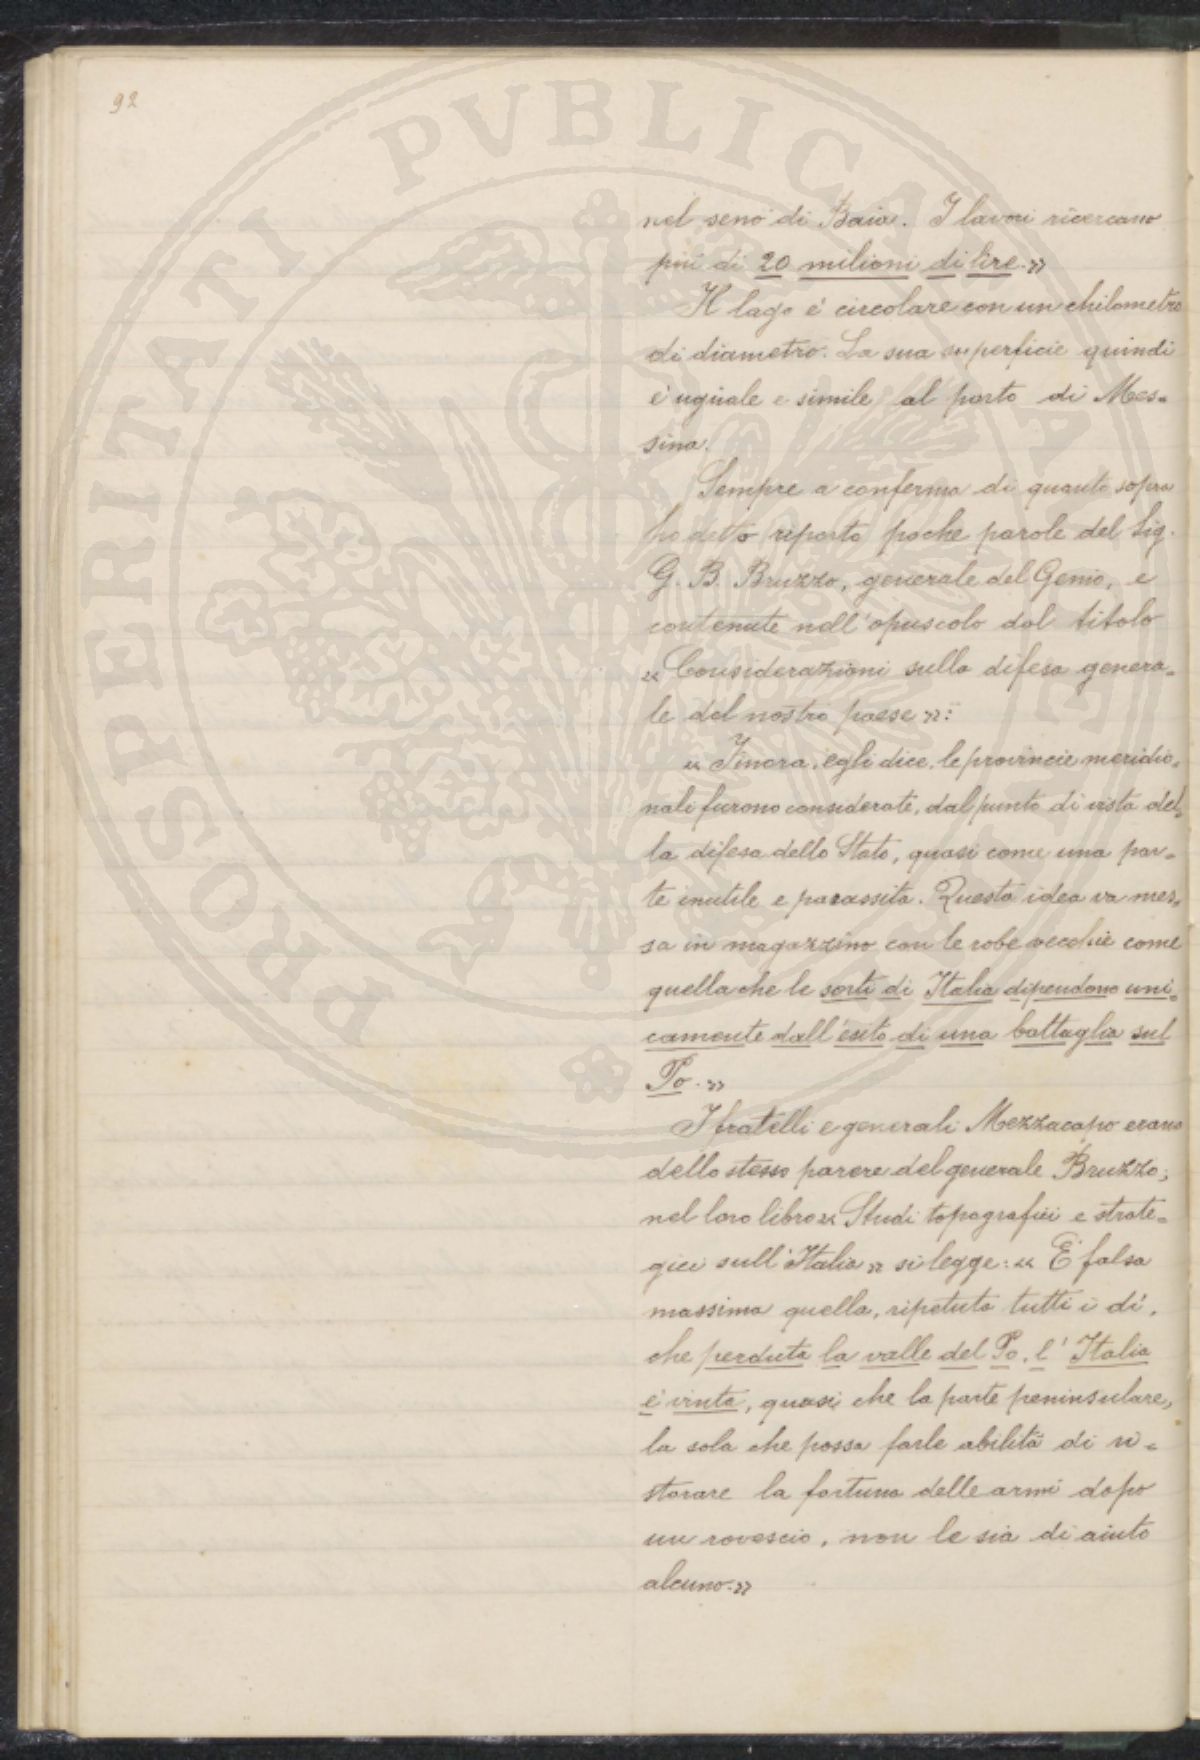 92
PROSPERITATI PVBLICAE
nel seno di Baia. I lavori ricercano
più di 20 milioni di lire.»
Il lago è circolare con un chilometro
di diametro. La sua superficie quindi
è uguale e simile al porto di Mes=
sina.
Sempre a conferma di quanto sopra
ho detto riporto poche parole del Sig.
G. B. Bruzzo, generale del Genio, e
contenute nell'opuscolo dal titolo
« Considerazioni sulla difesa genera=
le del nostro paese »:
« Finora, egli dice, le provincie meridio=
nali furono considerate, dal punto di vista del=
la difesa dello Stato, quasi come una par=
te inutile e parassita. Questa idea va mes=
sa in magazzino con le robe vecchie come
quella che le sorti di Italia dipendono uni=
camente dall'esito di una battaglia sul
Po.»
I fratelli e generali Mezzacapo erano
dello stesso parere del generale Bruzzo;
nel loro libro « Studi topografici e strate=
gici sull'Italia » si legge: « È falsa
massima quella, ripetuta tutti i dì,
che perduta la valle del Po, l'Italia
è vinta, quasi che la parte peninsulare,
la sola che possa farle abilità di ri=
storare la fortuna delle armi dopo
un rovescio, non le sia di aiuto
alcuno.»